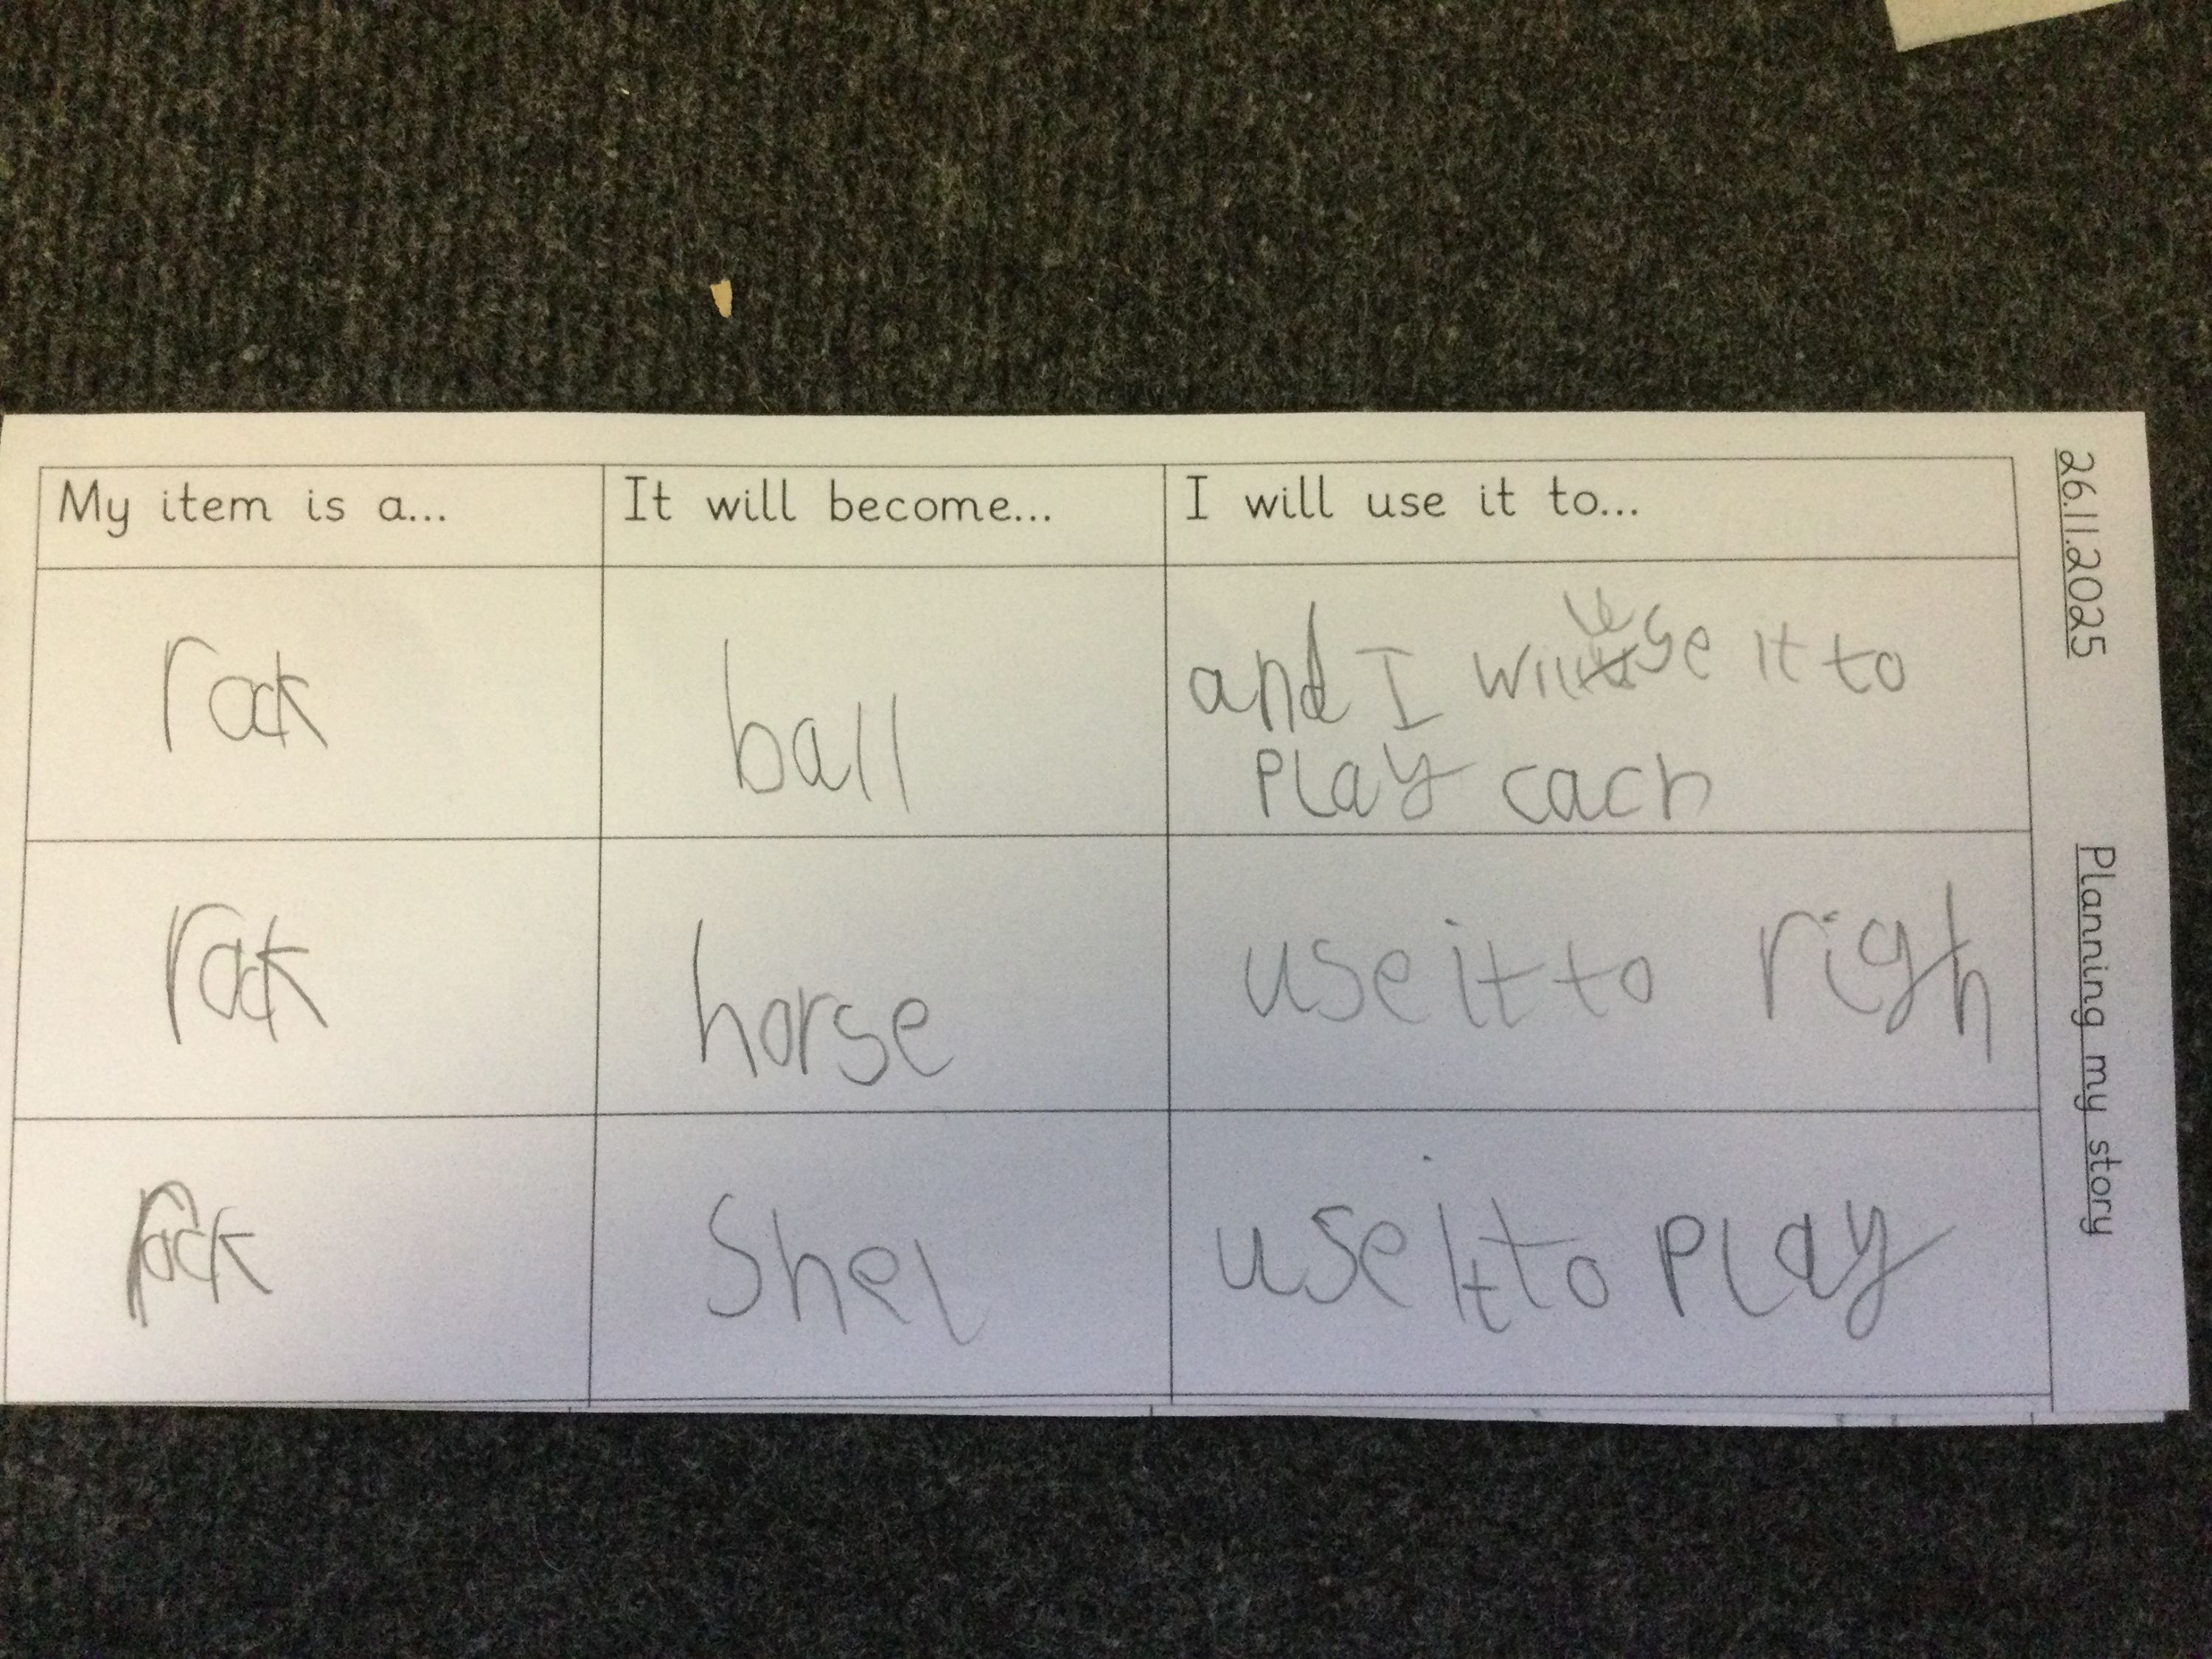 My item is a...
It will become...
I will use it to...
rock
ball
and I will use it to
play cach
rock
horse
use it to righ
rock
Shel
use it to play
26.11.2025
Planning my story